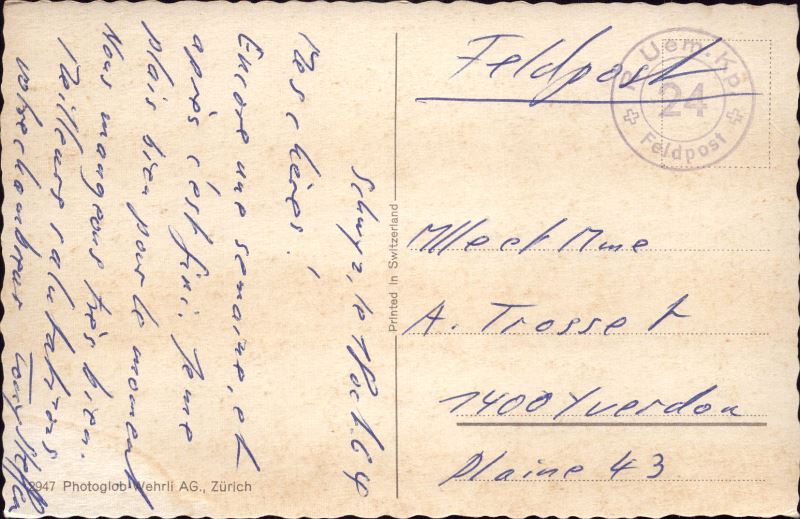 Schwyz, le 18 oct. 64
Mes chères!
Encore une semaine, et
après c'est fini. Je me
plais bien pour le moment
Nous mangeons très bien.
Meilleurs salutations
votre chambreur Tony
2947 Photoglob-Wehrli AG., Zürich
Printed in Switzerland
Feldpost
Uem. Kp.
24
Feldpost
Mlle et Mme
A. Trosset
1400 Yverdon
Plaine 43